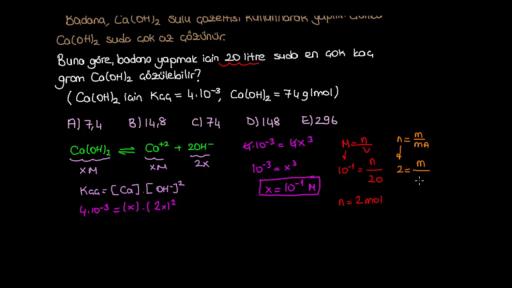 Badana, Ca(OH)₂ sulu çözeltisi kullanılarak
Ca(OH)₂ suda çok az çözünür.
Buna göre, badana yapmak için 20 litre suda en çok kaç
gram Ca(OH)₂ çözülebilir?
(Ca(OH)₂ için Kçç = 4.10⁻³, Ca(OH)₂ = 74 g/mol)
A) 7,4 B) 14,8 C) 74 D) 148 E) 296
Ca(OH)₂ ⇌ Ca⁺² + 2OH⁻
xM xM 2x
Kçç = [Ca].[OH⁻]²
4.10⁻³ = (x).(2x)²
4.10⁻³ = 4x³
10⁻³ = x³
x = 10⁻¹ M
M = n/V
10⁻¹ = n/20
n = 2mol
n = m/MA
2 = m/